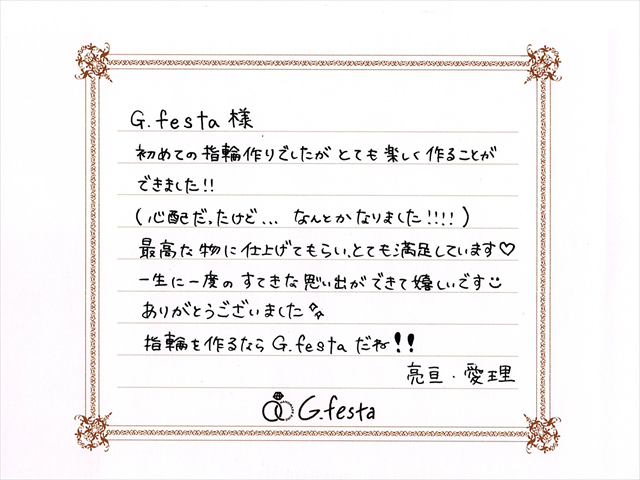 G.festa 様
初めての指輪作りでしたが とても楽しく作ることが
できました!!
(心配だったけど... なんとかなりました!!!!)
最高な物に仕上げてもらい、とても満足しています♡
一生に一度の すてきな思い出ができて嬉しいです☺
ありがとうございました✨
指輪を作るなら G.festa だね!!
亮亘・愛理
G.festa